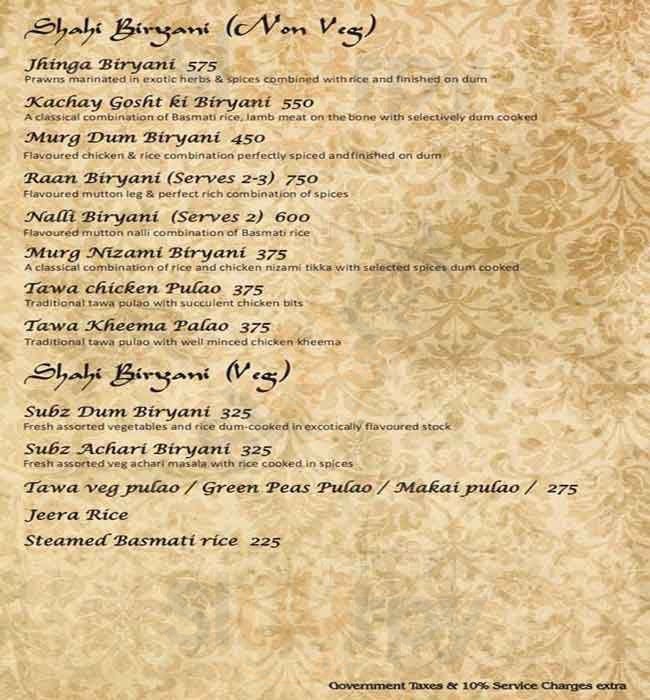 Shahi Biryani (Non Veg)
Jhinga Biryani 575
Prawns marinated in exotic herbs & spices combined with rice and finished on dum
Kachay Gosht ki Biryani 550
A classical combination of Basmati rice, lamb meat on the bone with selectively dum cooked
Murg Dum Biryani 450
Flavoured chicken & rice combination perfectly spiced and finished on dum
Raan Biryani (Serves 2-3) 750
Flavoured mutton leg & perfect rich combination of spices
Nalli Biryani (Serves 2) 600
Flavoured mutton nalli combination of Basmati rice
Murg Nizami Biryani 375
A classical combination of rice and chicken nizami tikka with selected spices dum cooked
Tawa chicken Pulao 375
Traditional tawa pulao with succulent chicken bits
Tawa Kheema Palao 375
Traditional tawa pulao with well minced chicken kheema
Shahi Biryani (Veg)
Subz Dum Biryani 325
Fresh assorted vegetables and rice dum-cooked in excotically flavoured stock
Subz Achari Biryani 325
Fresh assorted veg achari masala with rice cooked in spices
Tawa veg pulao / Green Peas Pulao / Makai pulao / 275
Jeera Rice
Steamed Basmati rice 225
Government Taxes & 10% Service Charges extra